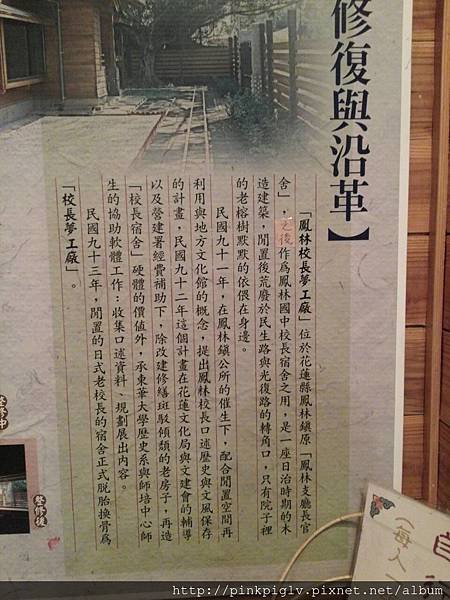 修復與沿革】
「鳳林校長夢工廠」位於花蓮縣鳳林鎮原「鳳林支廳長官
舍」，之後作為鳳林國中校長宿舍之用，是一座日治時期的木
造建築，閒置後荒廢於民生路與光復路的轉角口，只有院子裡
的老榕樹默默的依偎在身邊。
民國九十一年，在鳳林鎮公所的催生下，配合閒置空間再
利用與地方文化館的概念，提出鳳林校長口述歷史與文風保存
的計畫，民國九十二年這個計畫在花蓮文化局與文建會的輔導
以及營建署經費補助下，除改建修繕斑駁傾頹的老房子，再造
「校長宿舍」硬體的價值外，承東華大學歷史系與師培中心師
生的協助軟體工作：收集口述資料、規劃展出內容。
民國九十三年，閒置的日式老校長的宿舍正式脫胎換骨為
「校長夢工廠」。
整修中
整修後
自
（每人一
http://pinkpiglv.pixnet.net/album